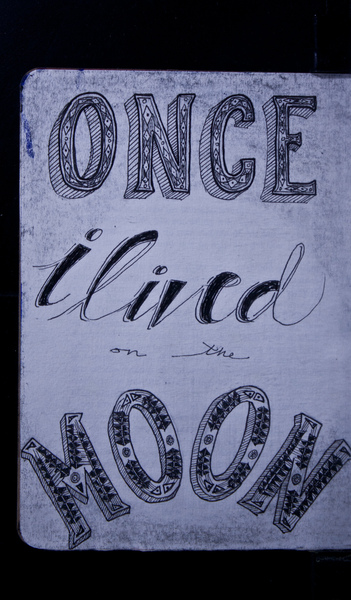 ONCE
i lived
on the
MOON